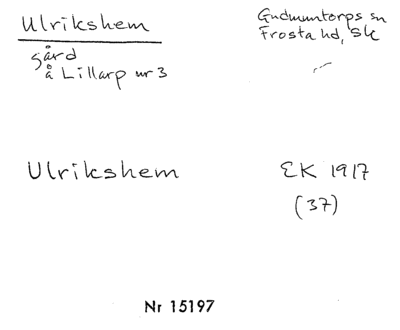 Ulrikshem
gård
å Lillarp nr 3
Gudmuntorps sn
Frosta hd, Sk
Ulrikshem
EK 1917
(37)
Nr 15197